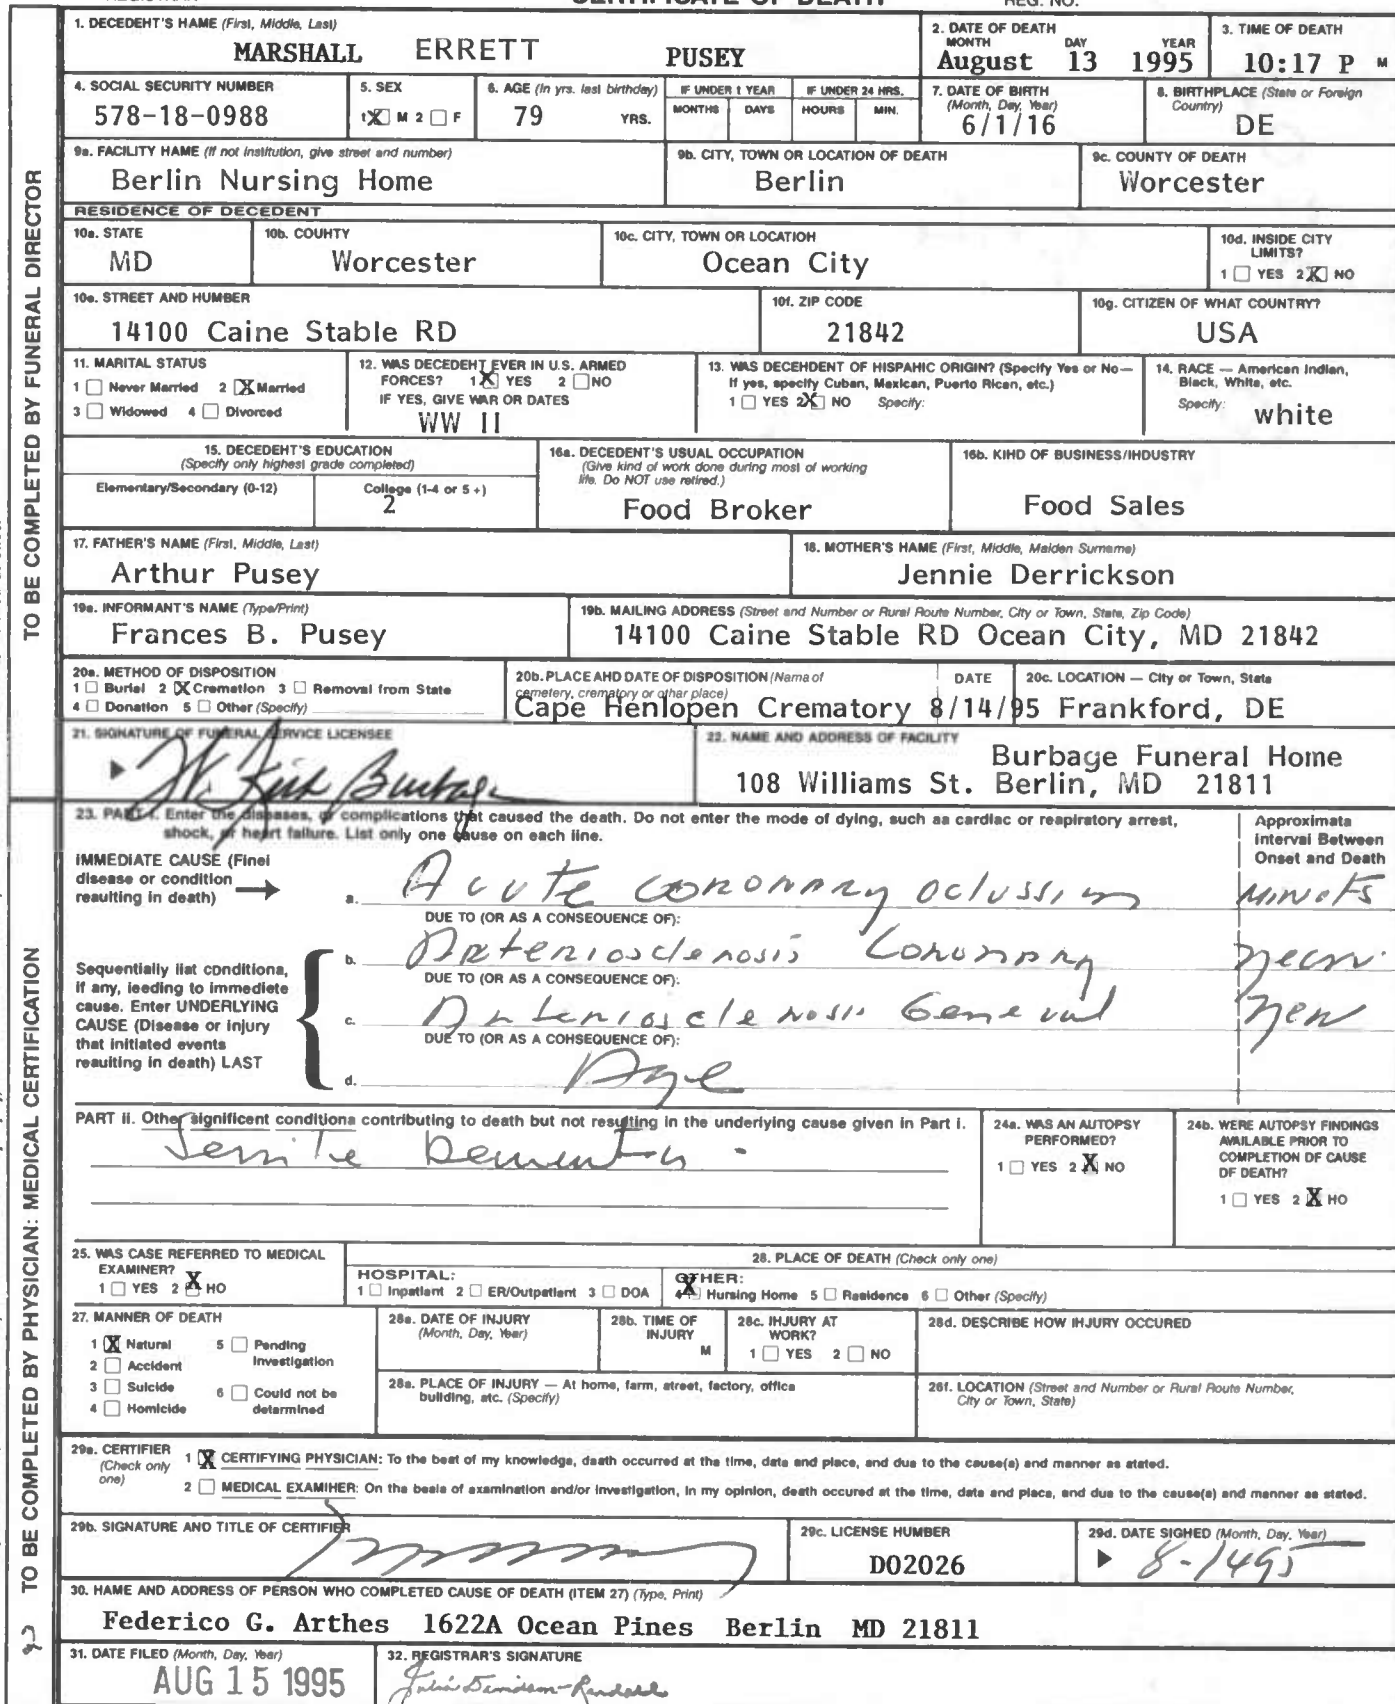 CERTIFICATE OF DEATH
REG. NO.
1. DECEDENT'S NAME (First, Middle, Last)
MARSHALL ERRETT PUSEY
2. DATE OF DEATH
MONTH DAY YEAR
August 13 1995
3. TIME OF DEATH
10:17 P M
4. SOCIAL SECURITY NUMBER
578-18-0988
5. SEX
1 X M 2 F
6. AGE (In yrs. last birthday)
79 YRS.
IF UNDER 1 YEAR
MONTHS DAYS
IF UNDER 24 HRS.
HOURS MIN.
7. DATE OF BIRTH
(Month, Day, Year)
6/1/16
8. BIRTHPLACE (State or Foreign
Country)
DE
9a. FACILITY NAME (If not institution, give street and number)
Berlin Nursing Home
9b. CITY, TOWN OR LOCATION OF DEATH
Berlin
9c. COUNTY OF DEATH
Worcester
RESIDENCE OF DECEDENT
10a. STATE
MD
10b. COUNTY
Worcester
10c. CITY, TOWN OR LOCATION
Ocean City
10d. INSIDE CITY
LIMITS?
1 YES 2 X NO
10e. STREET AND NUMBER
14100 Caine Stable RD
10f. ZIP CODE
21842
10g. CITIZEN OF WHAT COUNTRY?
USA
11. MARITAL STATUS
1 Never Married 2 X Married
3 Widowed 4 Divorced
12. WAS DECEDENT EVER IN U.S. ARMED
FORCES? 1 X YES 2 NO
IF YES, GIVE WAR OR DATES
WW II
13. WAS DECENDENT OF HISPANIC ORIGIN? (Specify Yes or No—
If yes, specify Cuban, Mexican, Puerto Rican, etc.)
1 YES 2 X NO Specify:
14. RACE — American Indian,
Black, White, etc.
Specify: white
15. DECEDENT'S EDUCATION
(Specify only highest grade completed)
Elementary/Secondary (0-12) College (1-4 or 5+)
2
16a. DECEDENT'S USUAL OCCUPATION
(Give kind of work done during most of working
life. Do NOT use retired.)
Food Broker
16b. KIND OF BUSINESS/INDUSTRY
Food Sales
17. FATHER'S NAME (First, Middle, Last)
Arthur Pusey
18. MOTHER'S NAME (First, Middle, Maiden Surname)
Jennie Derrickson
19a. INFORMANT'S NAME (Type/Print)
Frances B. Pusey
19b. MAILING ADDRESS (Street and Number or Rural Route Number, City or Town, State, Zip Code)
14100 Caine Stable RD Ocean City, MD 21842
20a. METHOD OF DISPOSITION
1 Burial 2 X Cremation 3 Removal from State
4 Donation 5 Other (Specify)
20b. PLACE AND DATE OF DISPOSITION (Name of
cemetery, crematory or other place)
DATE
Cape Henlopen Crematory 8/14/95
20c. LOCATION — City or Town, State
Frankford, DE
21. SIGNATURE OF FUNERAL SERVICE LICENSEE
W. Kirk Burbage
22. NAME AND ADDRESS OF FACILITY
Burbage Funeral Home
108 Williams St. Berlin, MD 21811
23. PART I. Enter the diseases, or complications that caused the death. Do not enter the mode of dying, such as cardiac or respiratory arrest,
shock, or heart failure. List only one cause on each line.
Approximate
Interval Between
Onset and Death
IMMEDIATE CAUSE (Final
disease or condition
resulting in death)
a. Acute coronary oclussion
DUE TO (OR AS A CONSEQUENCE OF):
b. Arteriosclerosis Coronary
DUE TO (OR AS A CONSEQUENCE OF):
c. Arteriosclerosis General
DUE TO (OR AS A CONSEQUENCE OF):
d. Age
Sequentially list conditions,
if any, leading to immediate
cause. Enter UNDERLYING
CAUSE (Disease or injury
that initiated events
resulting in death) LAST
PART II. Other significant conditions contributing to death but not resulting in the underlying cause given in Part I.
Senile Dementia
24a. WAS AN AUTOPSY
PERFORMED?
1 YES 2 X NO
24b. WERE AUTOPSY FINDINGS
AVAILABLE PRIOR TO
COMPLETION OF CAUSE
OF DEATH?
1 YES 2 X NO
25. WAS CASE REFERRED TO MEDICAL
EXAMINER?
1 YES 2 X NO
26. PLACE OF DEATH (Check only one)
HOSPITAL:
1 Inpatient 2 ER/Outpatient 3 DOA
OTHER:
4 X Nursing Home 5 Residence 6 Other (Specify)
27. MANNER OF DEATH
1 X Natural 5 Pending
Investigation
2 Accident
3 Suicide 6 Could not be
determined
4 Homicide
28a. DATE OF INJURY
(Month, Day, Year)
28b. TIME OF
INJURY
M
28c. INJURY AT
WORK?
1 YES 2 NO
28d. DESCRIBE HOW INJURY OCCURED
28e. PLACE OF INJURY — At home, farm, street, factory, office
building, etc. (Specify)
28f. LOCATION (Street and Number or Rural Route Number,
City or Town, State)
29a. CERTIFIER
(Check only
one)
1 X CERTIFYING PHYSICIAN: To the best of my knowledge, death occurred at the time, date and place, and due to the cause(s) and manner as stated.
2 MEDICAL EXAMINER: On the basis of examination and/or investigation, in my opinion, death occured at the time, date and place, and due to the cause(s) and manner as stated.
29b. SIGNATURE AND TITLE OF CERTIFIER
29c. LICENSE NUMBER
D02026
29d. DATE SIGNED (Month, Day, Year)
8-1495
30. NAME AND ADDRESS OF PERSON WHO COMPLETED CAUSE OF DEATH (ITEM 27) (Type, Print)
Federico G. Arthes 1622A Ocean Pines Berlin MD 21811
31. DATE FILED (Month, Day, Year)
AUG 15 1995
32. REGISTRAR'S SIGNATURE
TO BE COMPLETED BY FUNERAL DIRECTOR
TO BE COMPLETED BY PHYSICIAN: MEDICAL CERTIFICATION